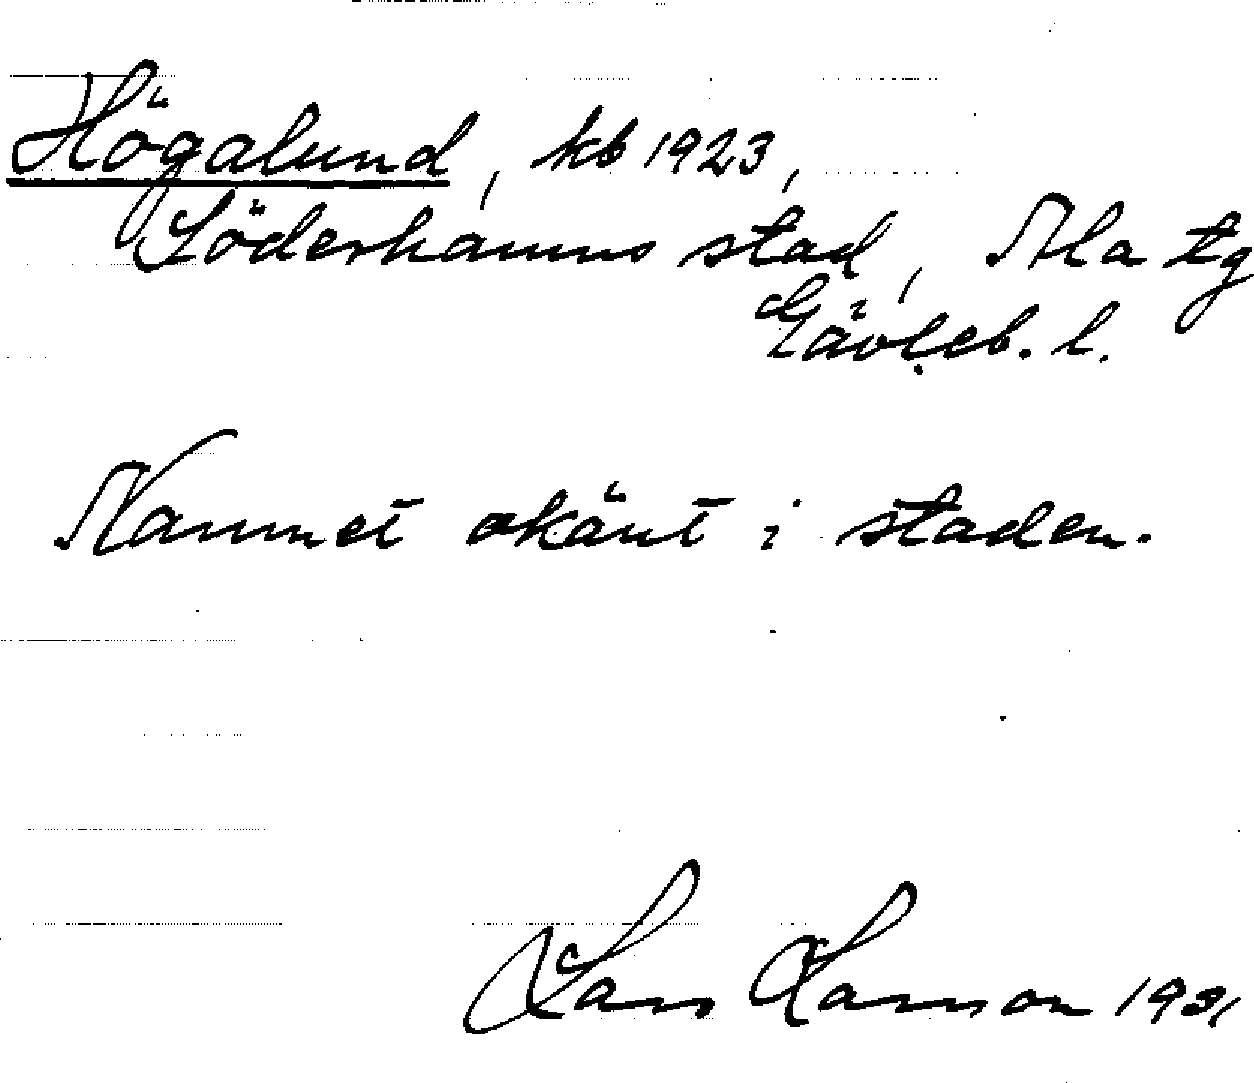 Högalund, kb 1923,
Söderhamns stad, Ala tg
Gävleb. l.
Namnet okänt i staden.
Lars Larsson 1931